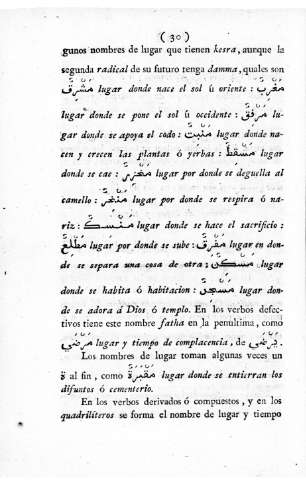 ( 30 )
gunos nombres de lugar que tienen kesra, aunque la
segunda radical de su futuro tenga damma, quales son
مَشْرِقٌ lugar donde nace el sol ú oriente : مَغْرِبٌ
lugar donde se pone el sol ú occidente : مَرْفِقٌ lu-
gar donde se apoya el codo : مَنْبِتٌ lugar donde na-
cen y crecen las plantas ó yerbas : مَسْقِطٌ lugar
donde se cae : مَجْزِرٌ lugar por donde se deguella al
camello : مَنْخِرٌ lugar por donde se respira ó na-
riz : مَنْسِكٌ lugar donde se hace el sacrificio :
مَطْلِعٌ lugar por donde se sube : مَفْرِقٌ lugar en don-
de se separa una cosa de otra : مَسْكِنٌ lugar
donde se habita ó habitacion : مَسْجِدٌ lugar don-
de se adora á Dios ó templo. En los verbos defec-
tivos tiene este nombre fatha en la penultima, como
مَرْضًي lugar y tiempo de complacencia, de يَرْضَي.
Los nombres de lugar toman algunas veces un
ة al fin, como مَقْبَرَةٌ lugar donde se entierran los
difuntos ó cementerio.
En los verbos derivados ó compuestos, y en los
quadriliteros se forma el nombre de lugar y tiempo